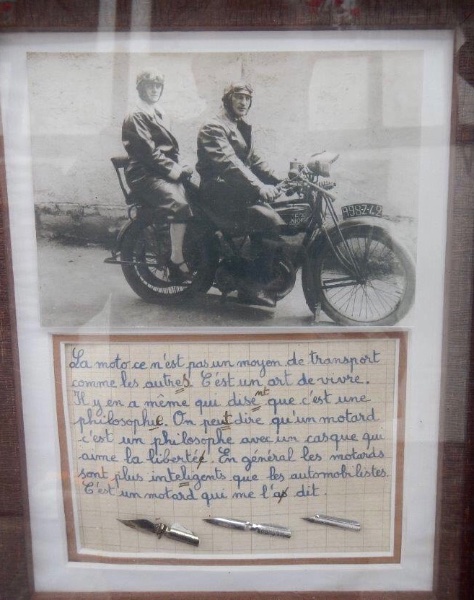 9992-L2
La moto ce n'est pas un moyen de transport
comme les autres. C'est un art de vivre.
Il y en a même qui disent que c'est une
philosophie. On peut dire qu'un motard
c'est un philosophe avec un casque qui
aime la liberté. En général les motards
sont plus inteligents que les automobilistes.
C'est un motard qui me l'a dit.